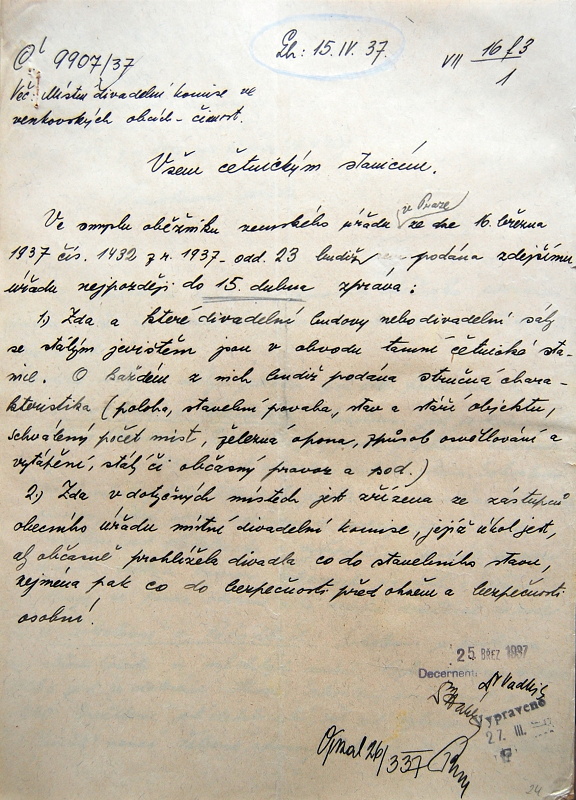 Čl 9907/37
Lh: 15.IV.37.
VII 16/3
1
Věc: Místní divadelní komise ve
venkovských obcích - činnost.
Všem četnickým stanicím.
ve Praze
Ve smyslu oběžníku zemského úřadu ze dne 16. března
1937 čís. 1432 z r. 1937 - odd. 23 budiž podána zdejšímu
úřadu nejpozději do 15. dubna zpráva:
1.) Zda a které divadelní budovy nebo divadelní sály
se stálým jevištěm jsou v obvodu tamní četnické sta-
nice. O každém z nich budiž podána stručná chara-
kteristika (poloha, stavební povaha, stav a stáří objektu,
schválený počet míst, železná opona, způsob osvětlování a
vytápění, stálý či občasný provoz a pod.)
2.) Zda v dotyčných místech jest zřízena ze zástupců
obecního úřadu místní divadelní komise, jejíž úkol jest,
aby občasně prohlížela divadla co do stavebního stavu,
zejména pak co do bezpečnosti před ohněm a bezpečnosti
osobní.
25 BŘEZ 1937
Decernent
Vypraveno
27. III.
Opsal 26/3 37
24